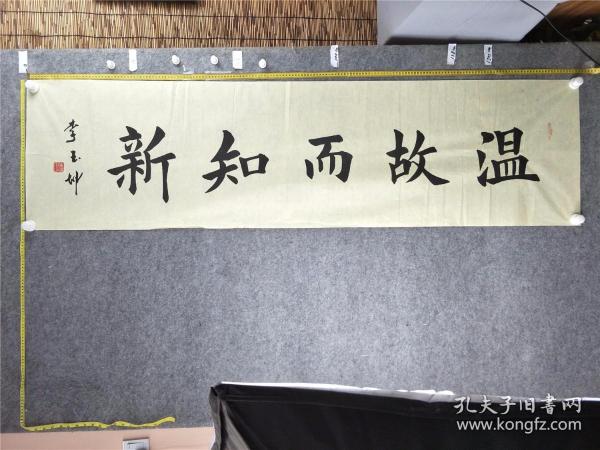 温故而知新
李玉坤
孔夫子旧書网
www.kongfz.com